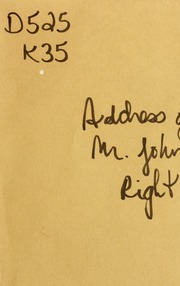 D525
K35
Address o
Mr. John
Right